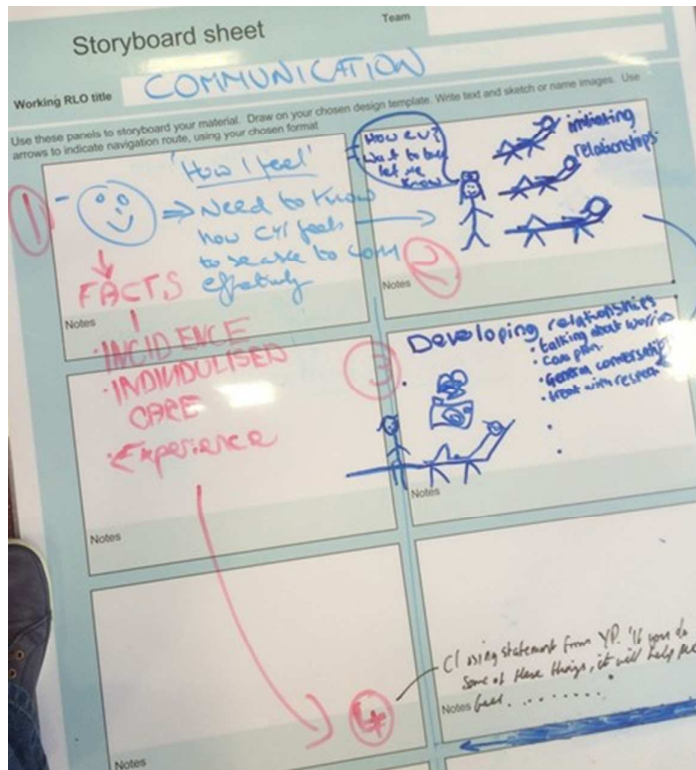 Storyboard sheet
Team
Working RLO title
COMMUNICATION
Use these panels to storyboard your material. Draw on your chosen design template. Write text and sketch or name images. Use
arrows to indicate navigation route, using your chosen format
1
'How I feel'
Need to know
how CYP feels
to be able to com
effectively
FACTS
Notes
INCIDENCE
INDIVIDULISED
CARE
Experience
Notes
How
Want to
let me
know
initiating
relationships
2
Notes
3
Developing relationships
talking about worries
General conversation
treat with respect
Notes
4
Closing statement from YP. 'If you do
some of these things, it will help me
feel . . . . . . . .
Notes
Notes